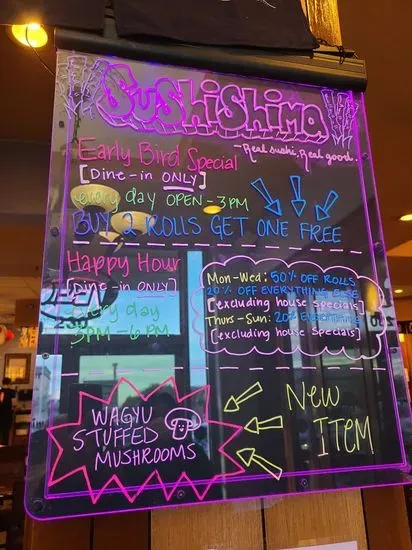 SushiShima
-Real sushi, Real good.
Early Bird Special
[Dine-in ONLY]
every day OPEN-3PM
BUY 2 ROLLS GET ONE FREE
Happy Hour
[Dine-in ONLY]
every day
3PM-6PM
Mon-Wed: 50% OFF ROLLS
20% OFF EVERYTHING ELSE
[excluding house specials]
Thurs-Sun: 20% EVERYTHING
[excluding house specials]
WAGYU
STUFFED
MUSHROOMS
NEW
ITEM